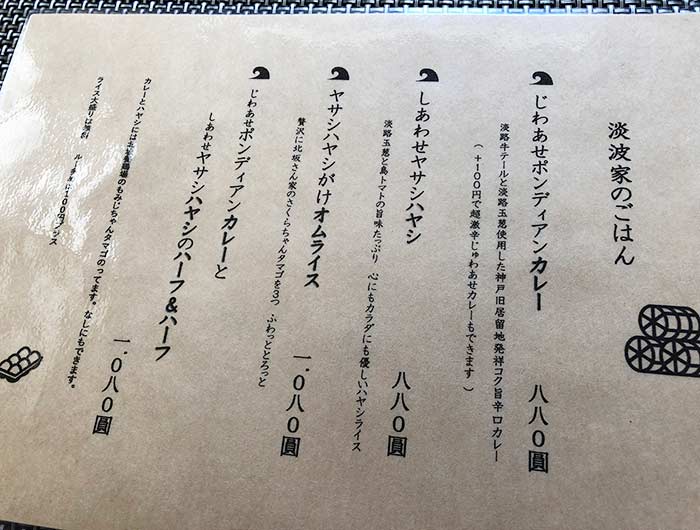 淡波家のごはん
じわあせポンディアンカレー 八八〇圓
淡路牛テールと淡路玉葱使用した神戸旧居留地発祥コク旨辛口カレー
(+100円で超激辛じゅわあせカレーもできます)
しあわせヤサシハヤシ 八八〇圓
淡路玉葱と島トマトの旨味たっぷり 心にもカラダにも優しいハヤシライス
ヤサシハヤシがけオムライス 一.〇八〇圓
贅沢に北坂さん家のさくらちゃんタマゴを3つ ふわっととろっと
じわあせポンディアンカレーと
しあわせヤサシハヤシのハーフ&ハーフ 一.〇八〇圓
カレーとハヤシには北坂養鶏場のもみじちゃんタマゴのってます。なしにもできます。
ライス大盛りは無料 ルー
に100円プラス